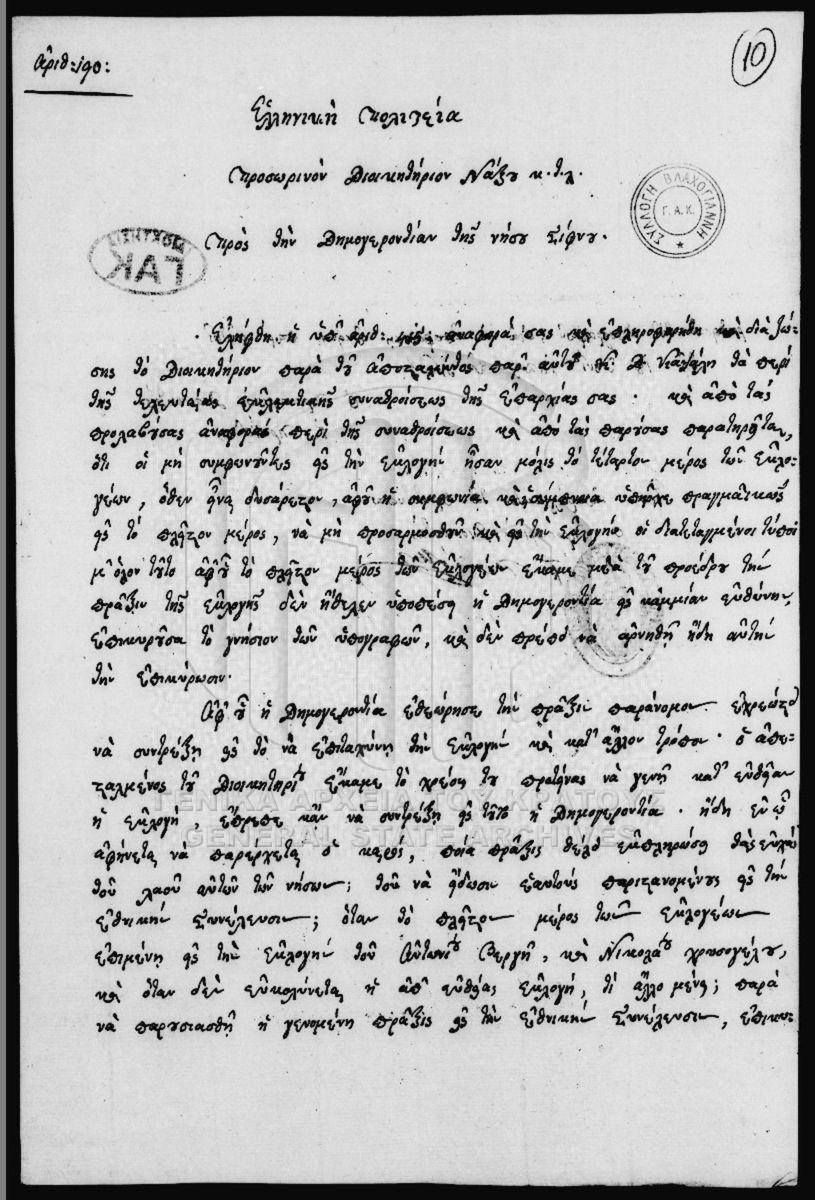 ἀριθ: 190:
10
Ἑλληνικὴ Πολιτεία
Προσωρινὸν Διοικητήριον Νάξου κ.τ.λ.
Πρὸς τὴν Δημογεροντίαν τῆς νήσου Σίφνου.
ΣΥΛΛΟΓΗ ΒΛΑΧΟΓΙΑΝΝΗ
Γ.Α.Κ.
ΓΑΚ
Ἐλήφθη ἡ ὑπ' ἀριθ: ἀναφορά σας καὶ ἐπληροφορήθη διὰ ζώ-
σης τὸ Διοικητήριον παρὰ τοῦ ἀποσταλέντος παρ' αὐτοῦ Κ. τὰ περὶ
τῆς τελευταίας ἐκλεκτικῆς συναθροίσεως τῆς ἐπαρχίας σας. καὶ ἀπὸ τὰς
προλαβούσας ἀναφορὰς περὶ τῆς συναθροίσεως καὶ ἀπὸ τὰς παρούσας παρατηρεῖται,
ὅτι οἱ μὴ συμφωνοῦντες εἰς τὴν ἐκλογὴν ἦσαν μόλις τὸ τέταρτον μέρος τῶν ἐκλο-
γέων, ὅθεν εἶναι δυσάρεστον, ἀφ' οὗ ἡ συμφωνία καὶ σύμπνοια ὑπῆρχε πραγματικῶς
εἰς τὸ πλεῖστον μέρος, νὰ μὴ προσαρμοσθοῦν καὶ εἰς τὴν ἐκλογὴν οἱ διατεταγμένοι τύποι
μ' ὅλον τοῦτο ἀφ' οὗ τὸ πλεῖστον μέρος τῶν ἐκλογέων ἔκαμε μετὰ τοῦ προέδρου τὴν
πρᾶξιν τῆς ἐκλογῆς δὲν ἤθελεν ὑποπέσῃ ἡ Δημογεροντία εἰς κάμμίαν εὐθύνην,
ἐπικυροῦσα τὸ γνήσιον τῶν ὑπογραφῶν, καὶ δὲν πρέπει νὰ ἀρνηθῇ ἤδη αὐτὴν
τὴν ἐπικύρωσιν.
Ἀφ' οὗ ἡ Δημογεροντία ἐθεώρησε τὴν πρᾶξιν παράνομον ἐχρεώστει
νὰ συντρέξῃ εἰς τὸ νὰ ἐπιταχύνῃ τὴν ἐκλογὴν καὶ κατ' ἄλλον τρόπον. ὁ ἀπε-
σταλμένος τοῦ Διοικητηρίου ἔκαμε τὸ χρέος του προτείνας νὰ γενῇ κατ' εὐθεῖαν
ἡ ἐκλογή, ἔπρεπε κἂν νὰ συντρέξῃ εἰς τοῦτο ἡ Δημογεροντία. ἤδη ἐν ᾧ
ἀφήνεται νὰ παρέρχεται ὁ καιρός, ποία πρᾶξις θέλει ἐκπληρώσῃ τὰς εὐχὰς
τοῦ λαοῦ αὐτῶν τῶν νήσων; τοῦ νὰ ἴδωσιν ἑαυτοὺς παριστανομένους εἰς τὴν
ἐθνικὴν Συνέλευσιν; ὅταν τὸ πλεῖστον μέρος τῶν ἐκλογέων
ἐπιμένῃ εἰς τὴν ἐκλογὴν τοῦ Ἀντωνίου Βεργῆ, καὶ Νικολάου Χρυσογέλου,
καὶ ὅταν δὲν εὐκολύνεται ἡ ἀπ' εὐθείας ἐκλογή, τί ἄλλο μένει; παρὰ
νὰ παρουσιασθῇ ἡ γενομένη πρᾶξις εἰς τὴν ἐθνικὴν Συνέλευσιν, ἐπικυ-
ΓΕΝΙΚΑ ΑΡΧΕΙΑ ΤΟΥ ΚΡΑΤΟΥΣ
GENERAL STATE ARCHIVES